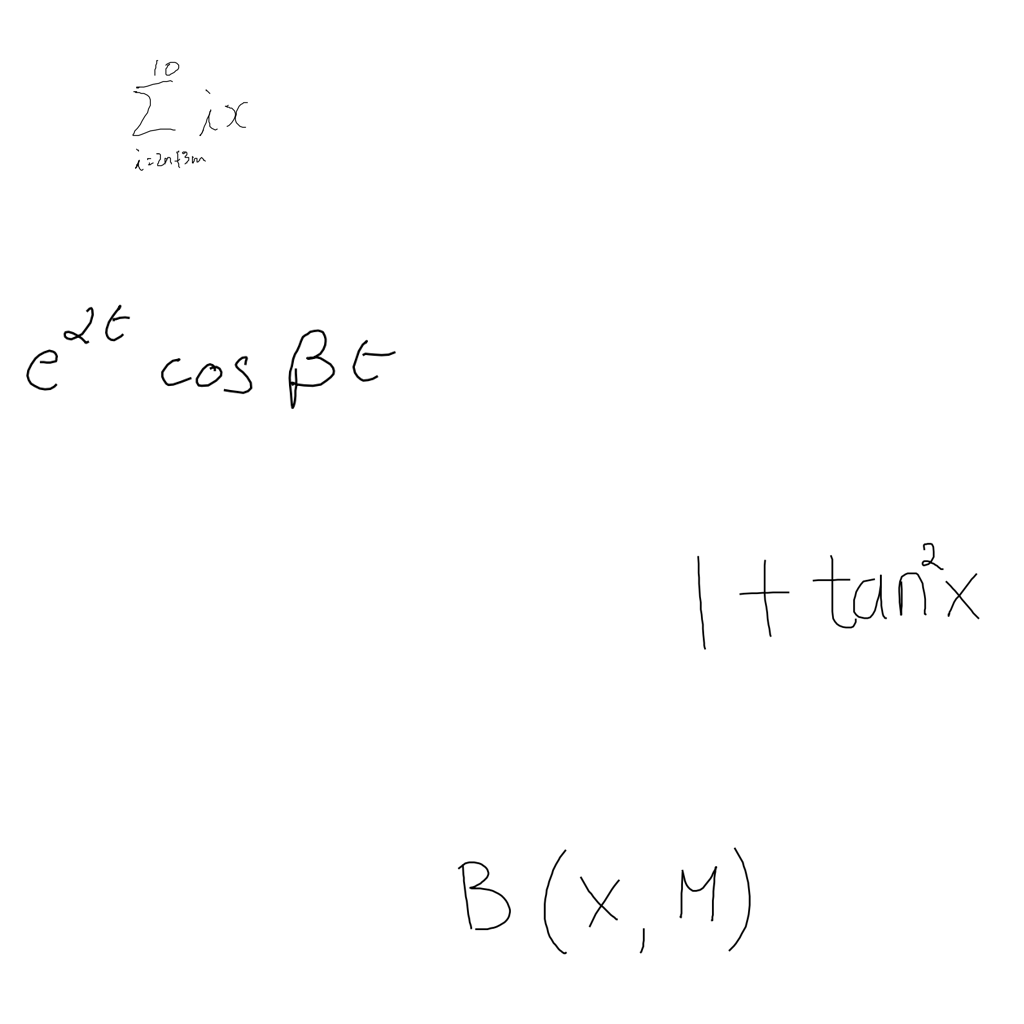 \sum_{i=2n+3m}^{10} ix
e^{2t} \cos \beta t
1 + \tan^2 x
B(X, M)